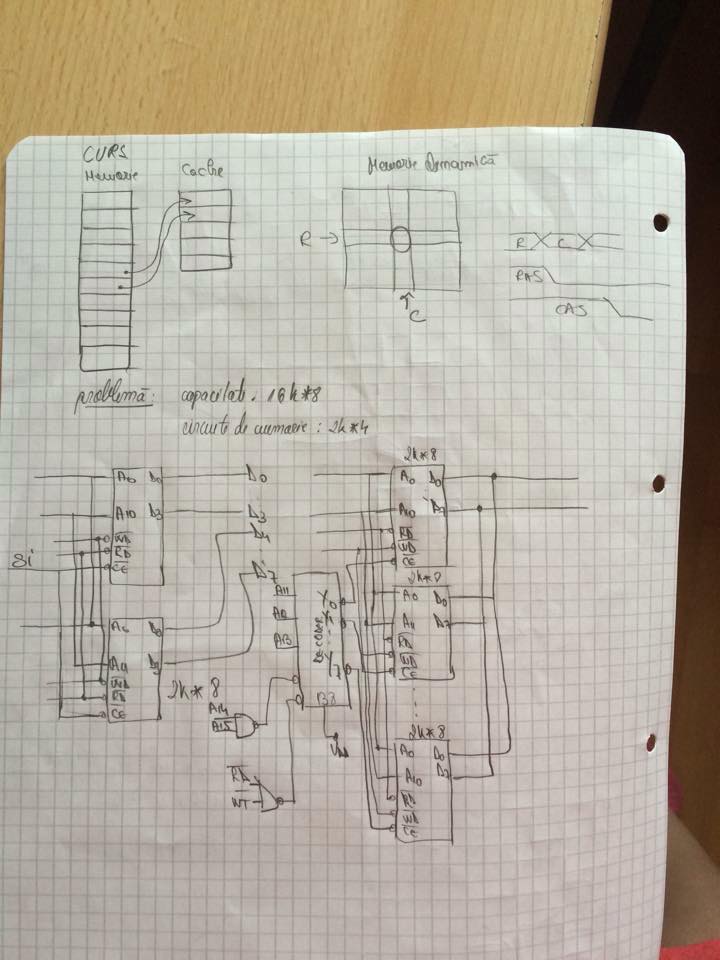 CURS
Memorie
Cache
Memorie Dinamică
R
C
R C
RAS
CAS
problemă: capacitate: 16k*8
circuite de memorie: 2k*4
A0 D0
A10 D3
WR
RD
CE
Si
A0 D0
WR
RD
CE
2k*8
D0
D3
D4
D7
A11
A13
DECODER
Y0
Y7
138
A14
A15
RD
2k*8
A0 D0
A10 D7
RD
WR
CE
A0 D0
D7
RD
WR
CE
2k*8
A0 D0
A10 D7
RD
WR
CE